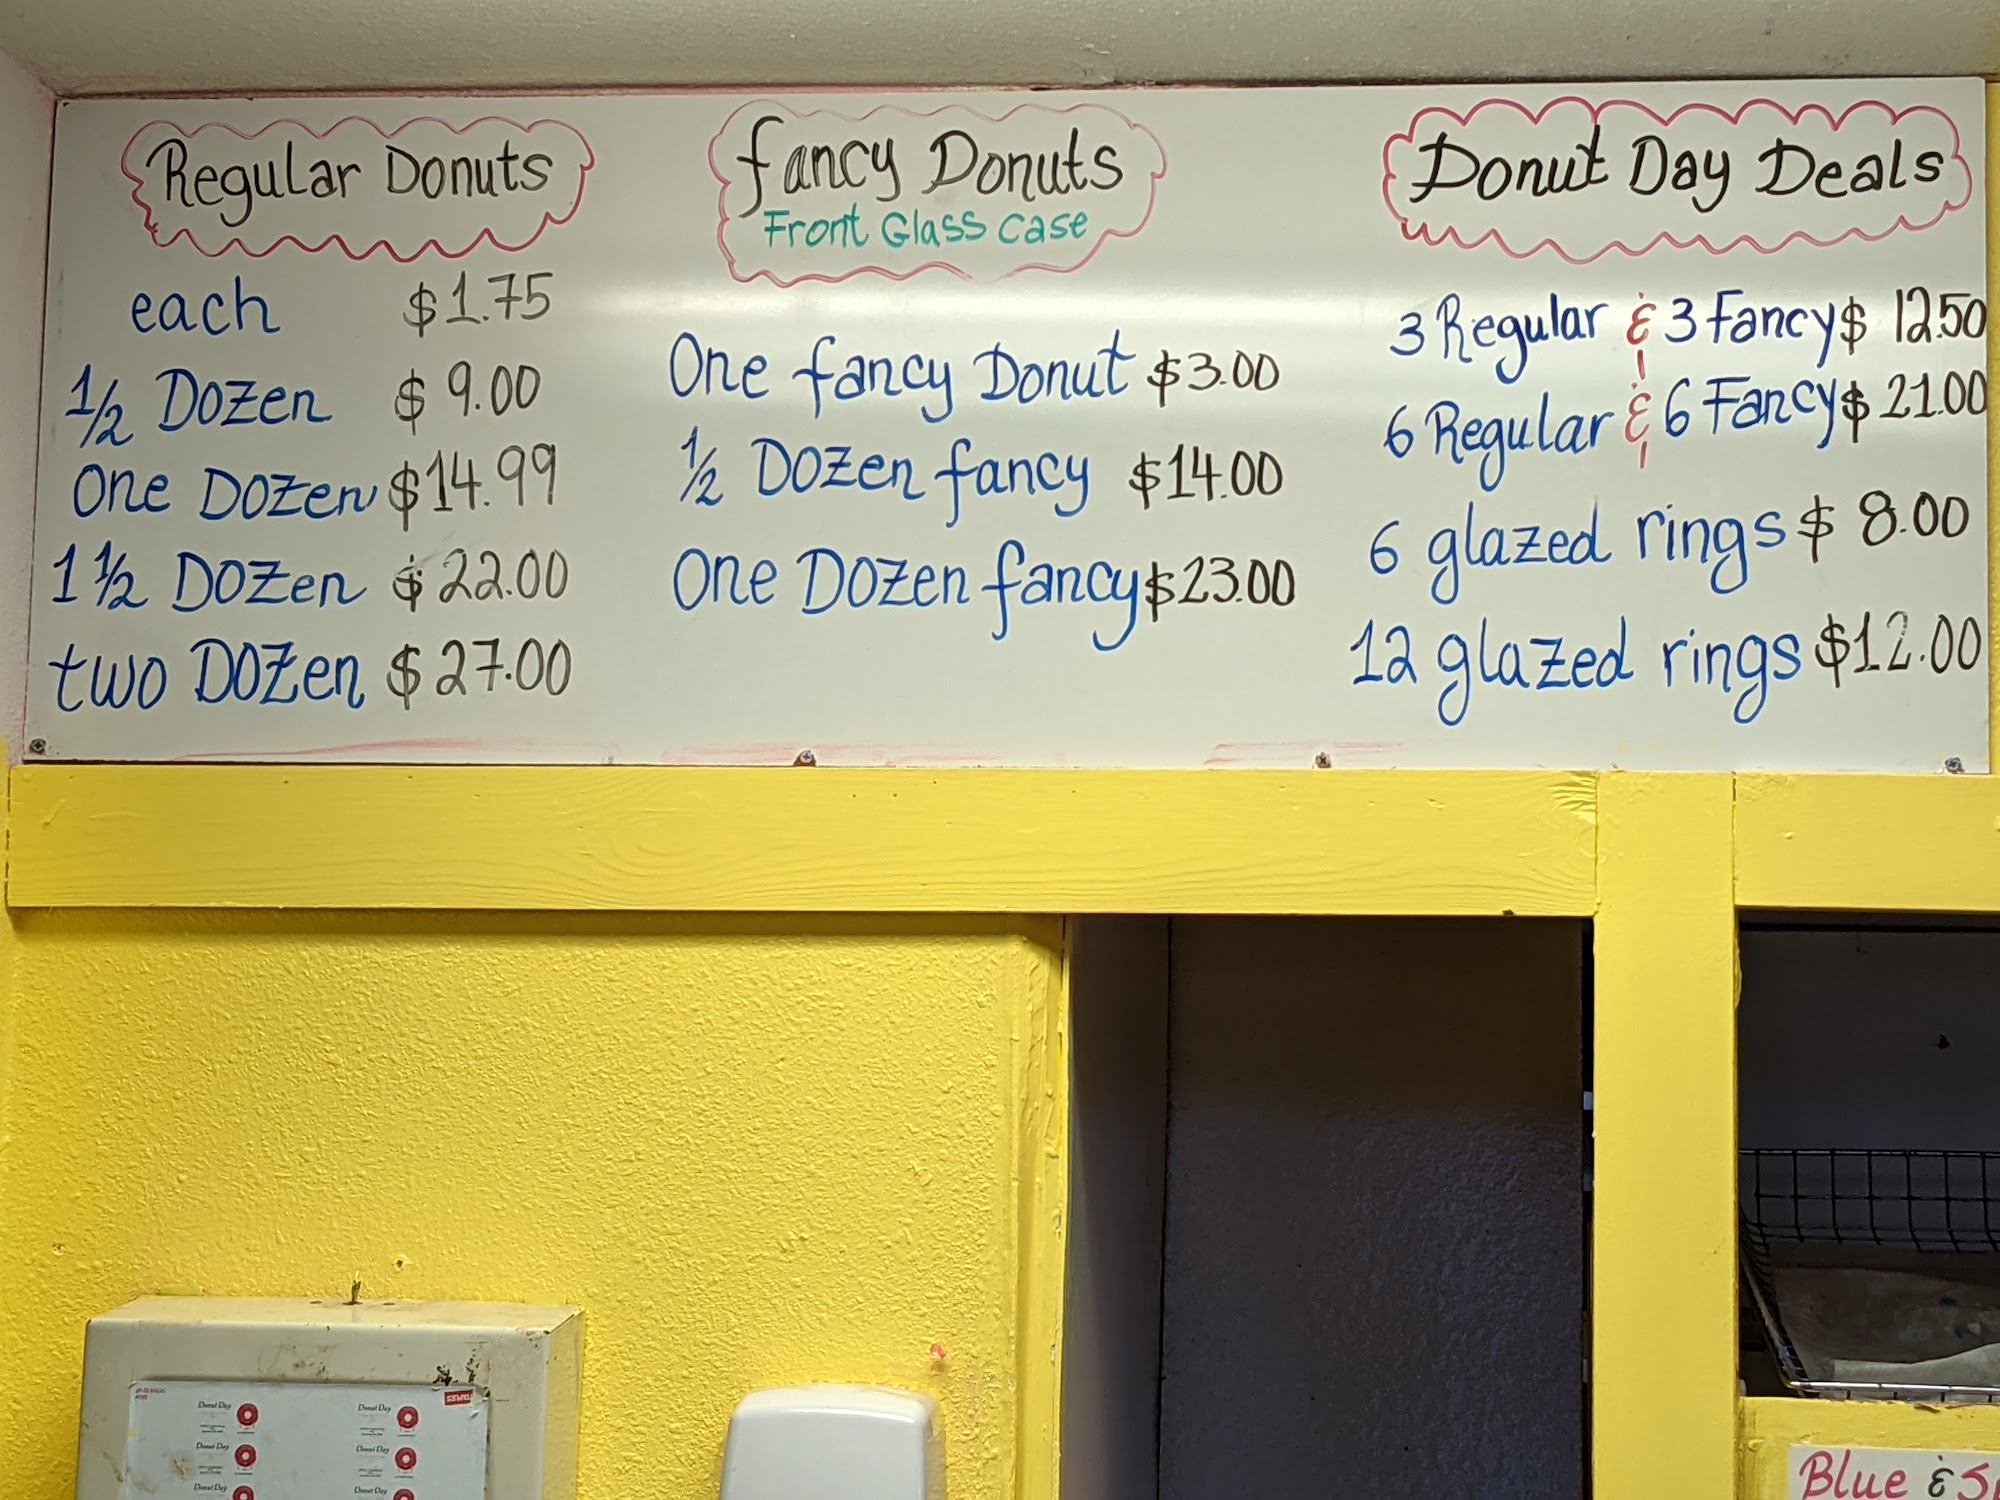 Regular Donuts
each $1.75
1/2 Dozen $9.00
One Dozen $14.99
1 1/2 Dozen $22.00
two Dozen $27.00
fancy Donuts
Front Glass Case
One fancy Donut $3.00
1/2 Dozen fancy $14.00
One Dozen fancy $23.00
Donut Day Deals
3 Regular & 3 Fancy $12.50
6 Regular & 6 Fancy $21.00
6 glazed rings $8.00
12 glazed rings $12.00
Donut Day
Donut Day
Donut Day
Donut Day
Donut Day
Donut Day
Blue &